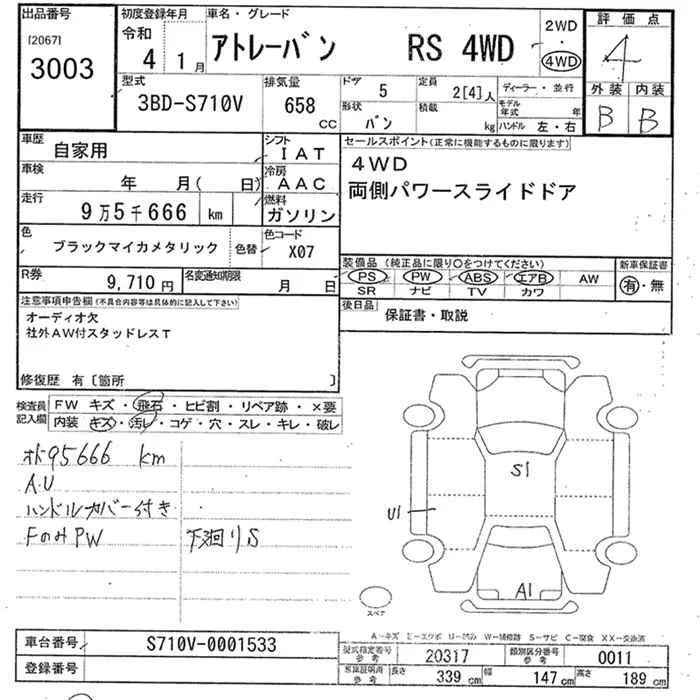 出品番号
[2067]
3003
初度登録年月
令和
4 1月
車名・グレード
アトレーバン RS 4WD
2WD
・
4WD
評価点
4
外装 内装
B B
型式
3BD-S710V
排気量
658
CC
ドア
5
形状
バン
定員
2[4]人
積載
kg
ディーラー・並行
モデル年式 年
ハンドル 左・右
車歴
自家用
シフト
IAT
車検
年 月( 日)
冷房
AAC
走行
9万5千666 km
燃料
ガソリン
色
ブラックマイカメタリック
色替
色コード
X07
R券
9,710円
名変通知期限
月 日
セールスポイント(正常に機能するものに限ります)
4WD
両側パワースライドドア
装備品(純正品に限り○をつけてください)
PS PW ABS エアB AW
SR ナビ TV カワ
新車保証書
有・無
後日品
保証書・取説
注意事項申告欄(不具合内容等は具体的に記入して下さい)
オーディオ欠
社外AW付スタッドレスT
修復歴 有〔箇所 〕
検査員
記入欄
FW キズ・飛石・ヒビ割・リペア跡・×要
内装 キズ・汚レ・コゲ・穴・スレ・キレ・破レ
オド95666 km
A.U
ハンドルカバー付き
FのみPW
下廻りS
S1
U1
A1
スペア
A-キズ E-エクボ U-凹み W-補修跡 S-サビ C-腐食 XX-交換済
車台番号
S710V-0001533
登録番号
型式指定番号
参考
20317
類別区分番号
参考
0011
参考
長さ
339 cm
幅
147 cm
高さ
189 cm